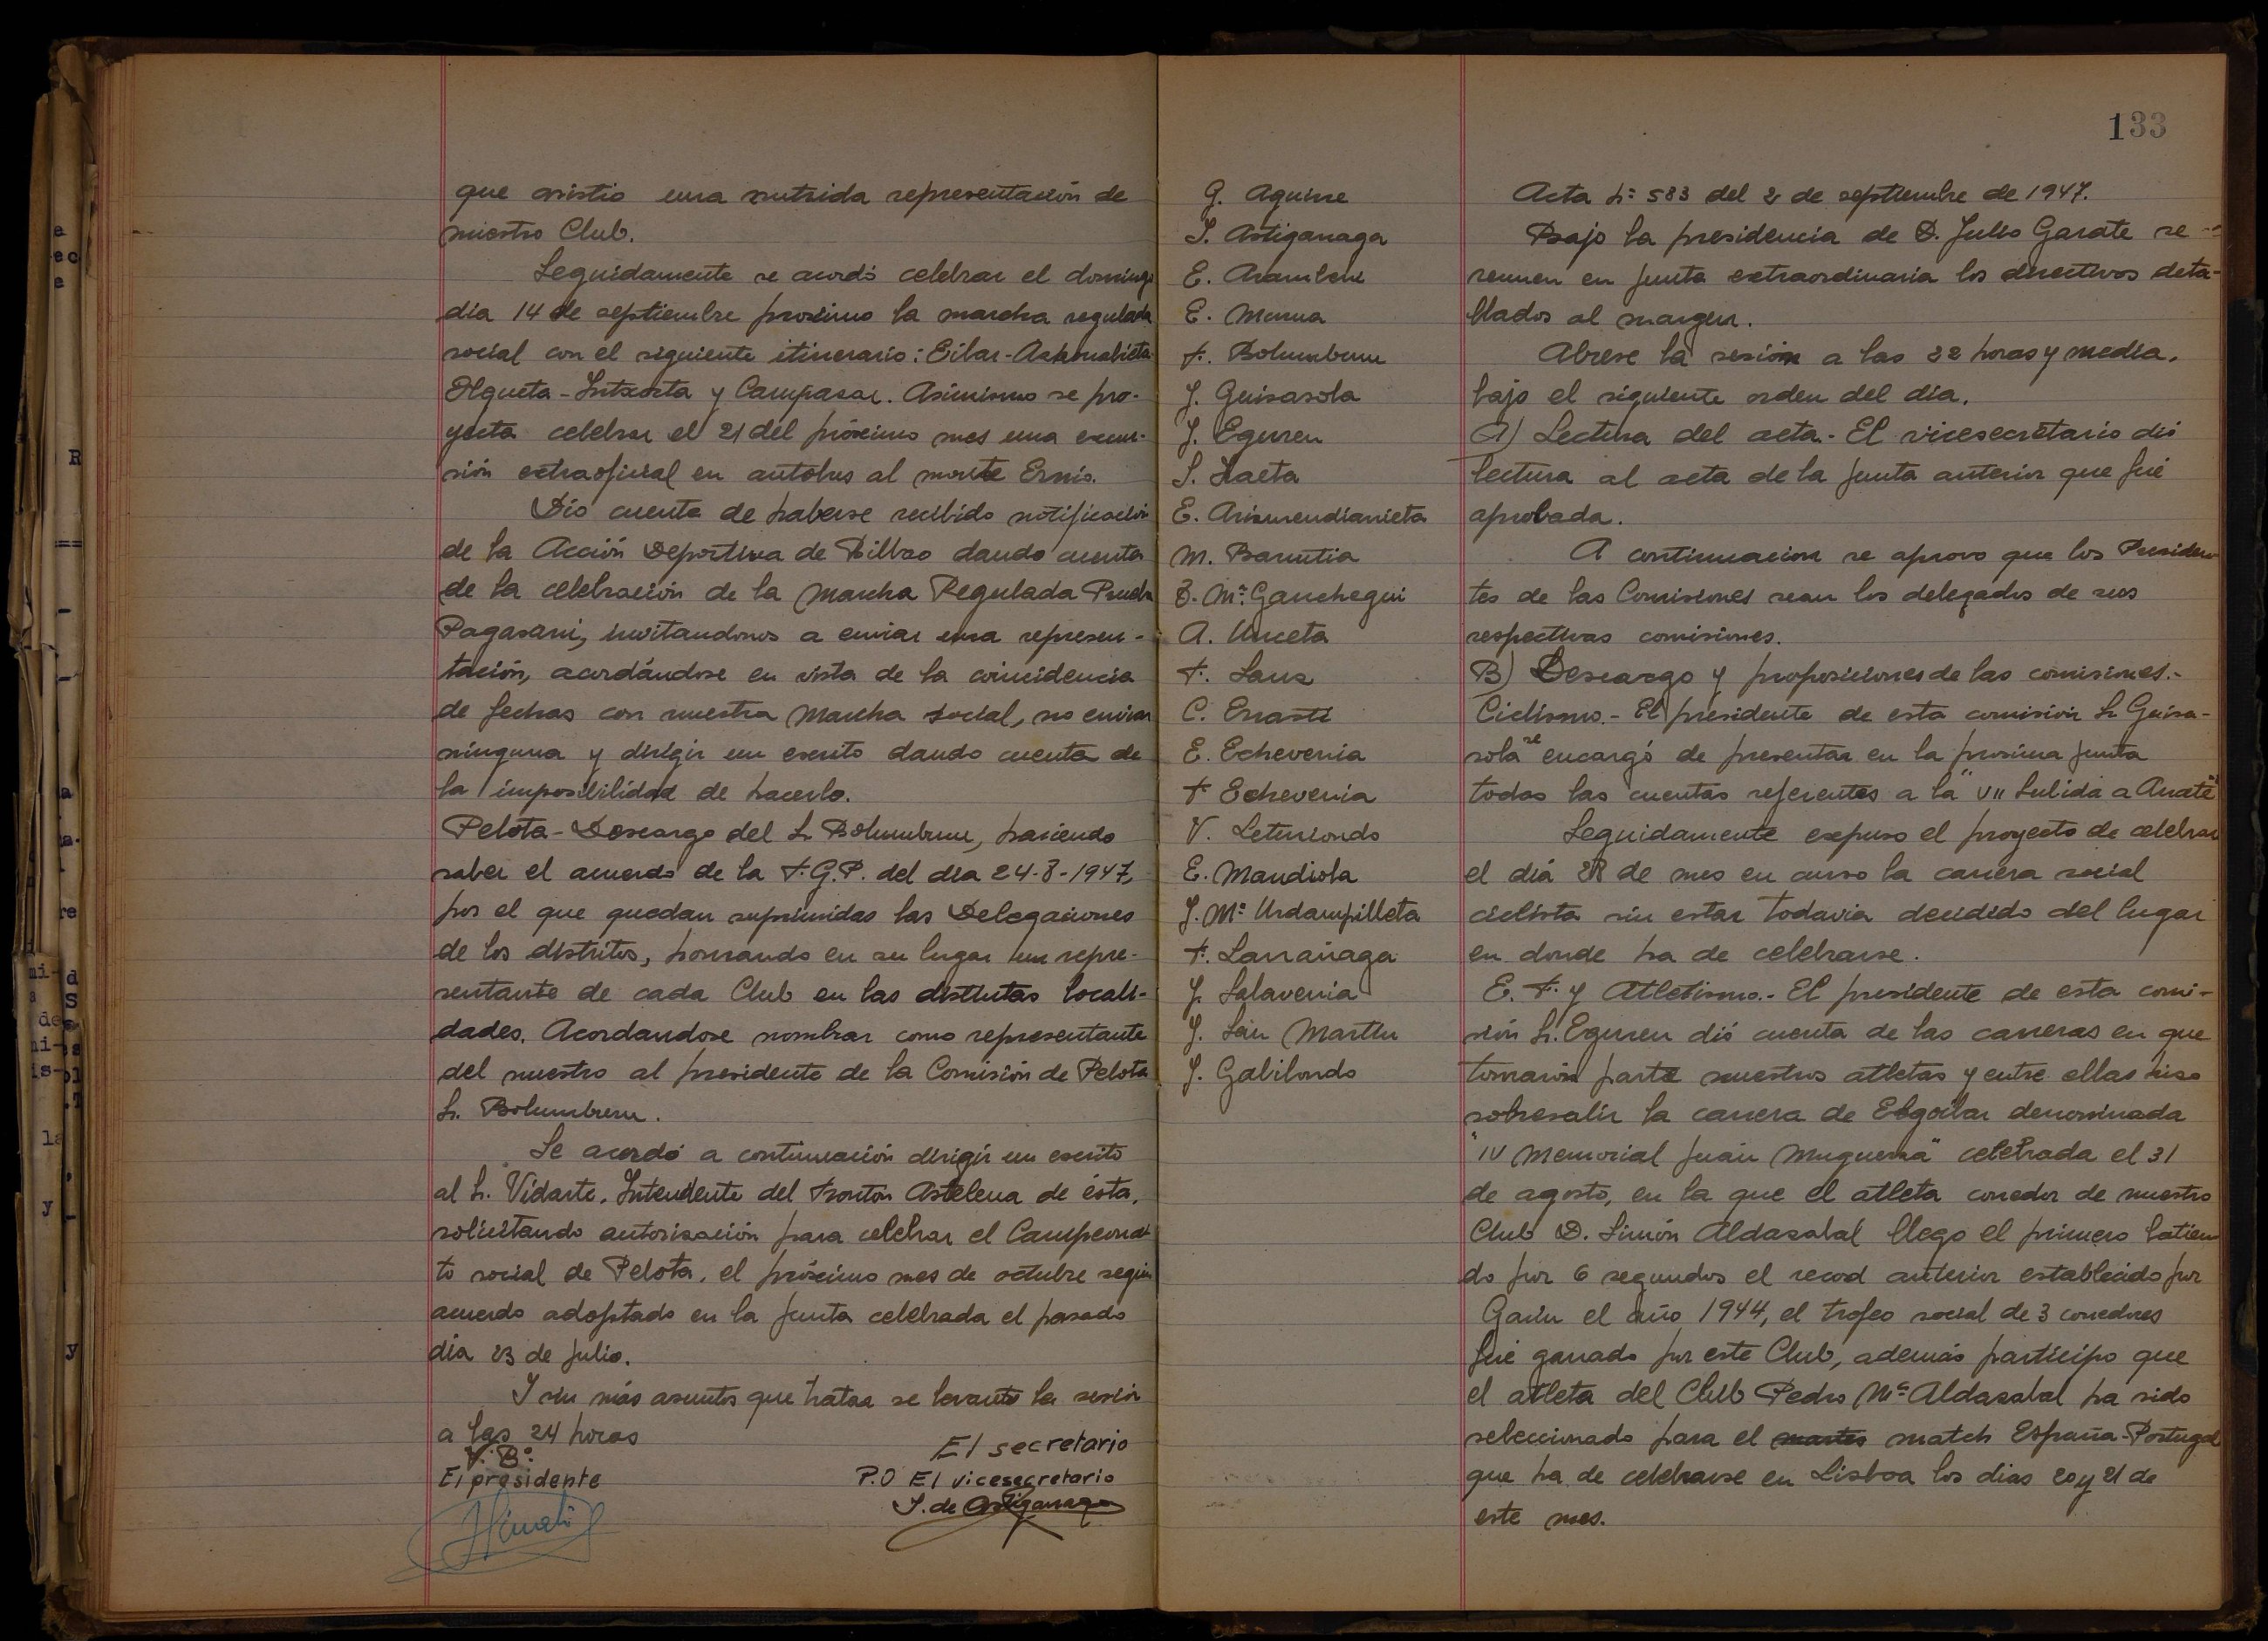 que asistio una nutrida representación de
nuestro Club.
Seguidamente se acordó celebrar el domingo
dia 14 de septiembre proximo la marcha regulada
social con el siguiente itinerario: Eibar-Askonabieta
Elgueta-Intxorta y Campazar. Asimismo se pro-
yecta celebrar el 21 del próximo mes una excur-
sión extraoficial en autobus al monte Ernio.
Dio cuenta de haberse recibido notificación
de la Acción Deportiva de Bilbao dando cuenta
de la celebración de la Marcha Regulada Prueba
Pagasarri, invitandonos a enviar una represen-
tación, acordándose en vista de la coincidencia
de fechas con nuestra Marcha social, no enviar
ninguna y dirigir un escrito dando cuenta de
la imposibilidad de hacerlo.
Pelota-Descargo del Sr Bolumburu, haciendo
saber el acuerdo de la F.G.P. del dia 24-8-1947,
por el que quedan suprimidas las Delegaciones
de los distritos, honrando en su lugar un repre-
sentante de cada Club en las distintas locali-
dades. Acordandose nombrar como representante
del nuestro al presidente de la Comisión de Pelota
Sr. Bolumburu.
Se acordó a continuación dirigir un escrito
al Sr. Vidarte. Intendente del Frontón Astelena de ésta,
solicitando autorización para celebrar el Campeona-
to social de Pelota, el próximo mes de octubre según
acuerdo adoptado en la Junta celebrada el pasado
dia 23 de Julio.
Y sin más asuntos que tratar se levantó la sesión
a las 24 horas
V. Bº
El presidente
El secretario
P.O El vicesecretario
S. de Astiganaga
G. Aguirre
S. Astiganaga
E. Aramberri
E. Murua
F. Bolumburu
J. Guisasola
J. Eguren
S. Iraeta
E. Arismendiarrieta
M. Barrutia
B. Mª Ganchegui
A. Unceta
F. Sanz
C. Errasti
E. Echeverria
F Echeverria
V. Leturiondo
E. Mandiola
J. Mª Urdampilleta
F. Larrañaga
J. Salaverria
J. San Martin
J. Gabilondo
133
Acta nº 583 del 2 de septiembre de 1947.
Bajo la presidencia de D. Julio Garate se
reunen en Junta extraordinaria los directivos deta-
llados al margen.
Abrese la sesión a las 22 horas y media,
bajo el siguiente orden del dia.
A) Lectura del acta.- El vicesecretario dió
lectura al acta de la Junta anterior que fué
aprobada.
A continuacion se aprovo que los Presiden-
tes de las Comisiones sean los delegados de sus
respectivas comisiones.
B) Descargo y proposiciones de las comisiones.-
Ciclismo.- El presidente de esta comisión Sr Guisa-
sola se encargó de presentar en la proxima Junta
todas las cuentas referentes a la "VII Subida a Arrate"
Seguidamente expuso el proyecto de celebrar
el dia 28 de mes en curso la carrera social
ciclista sin estar todavia decidido del lugar
en donde ha de celebrarse.
E. F. y Atletismo.- El presidente de esta comi-
sión Sr. Eguren dió cuenta de las carreras en que
tomaron parte nuestros atletas y entre ellas hiso
sobresalir la carrera de Elgoibar denominada
"IV Memorial Juan Muguerza" celebrada el 31
de agosto, en la que el atleta corredor de nuestro
Club D. Simón Aldazabal llego el primero batien-
do por 6 segundos el record anterior establecido por
Garin el año 1944, el trofeo social de 3 corredores
fué ganado por este Club, además participo que
el atleta del Club Pedro Mª Aldazabal ha sido
seleccionado para el martes match España-Portugal
que ha de celebrarse en Lisboa los dias 20 y 21 de
este mes.